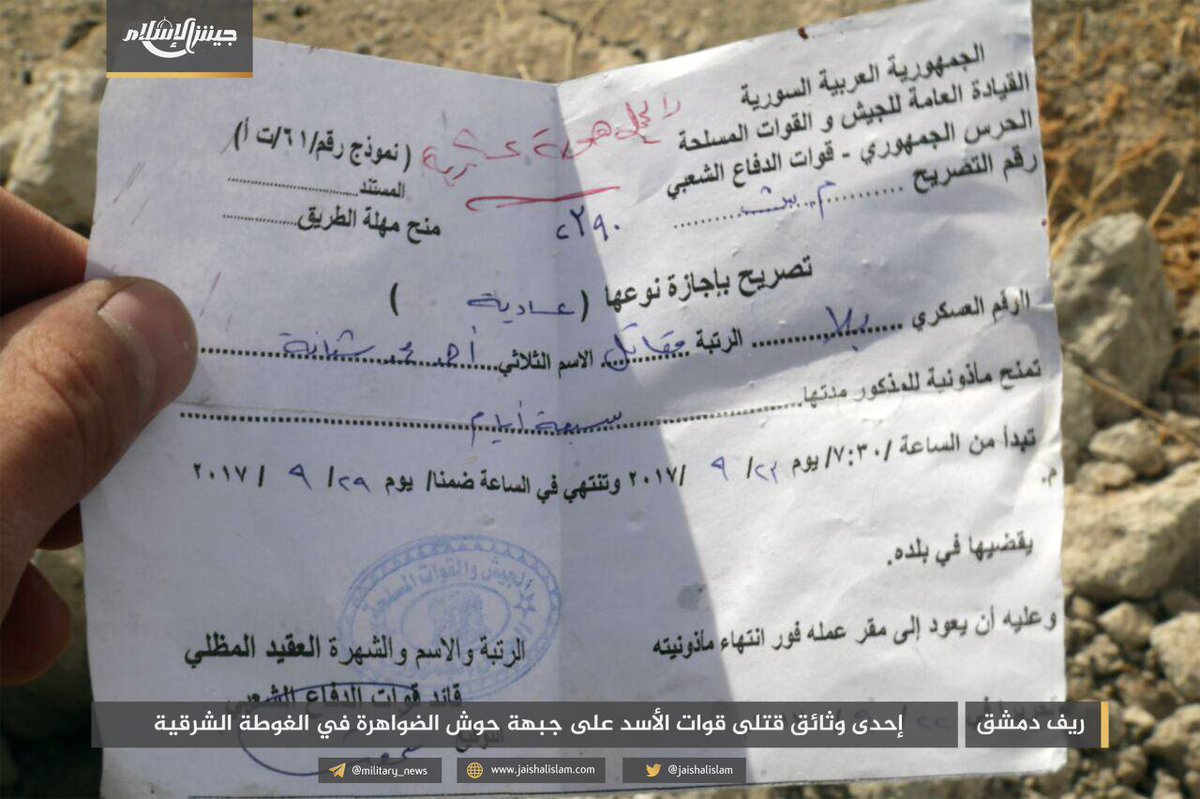 جيش الإسلام
الجمهورية العربية السورية
القيادة العامة للجيش و القوات المسلحة
الحرس الجمهوري - قوات الدفاع الشعبي
رقم التصريح ........
٢٩٠
(نموذج رقم/٦١/ت أ)
المستند ........
منح مهلة الطريق ........
تصريح بإجازة نوعها ( عادية )
الرقم العسكري بلا الرتبة مقاتل الاسم الثلاثي أحمد محمد
تمنح مأذونية للمذكور مدتها سبعة أيام
تبدأ من الساعة /٧:٣٠/ يوم ٢٢/ ٩ /٢٠١٧ وتنتهي في الساعة ضمنا/ يوم ٢٩/ ٩ / ٢٠١٧
م.
يقضيها في بلده.
وعليه أن يعود إلى مقر عمله فور انتهاء مأذونيته
الجيش والقوات المسلحة
الرتبة والاسم والشهرة العقيد المظلي
قائد قوات الدفاع الشعبي
ريف دمشق
إحدى وثائق قتلى قوات الأسد على جبهة حوش الضواهرة في الغوطة الشرقية
@military_news
www.jaishalislam.com
@jaishalislam